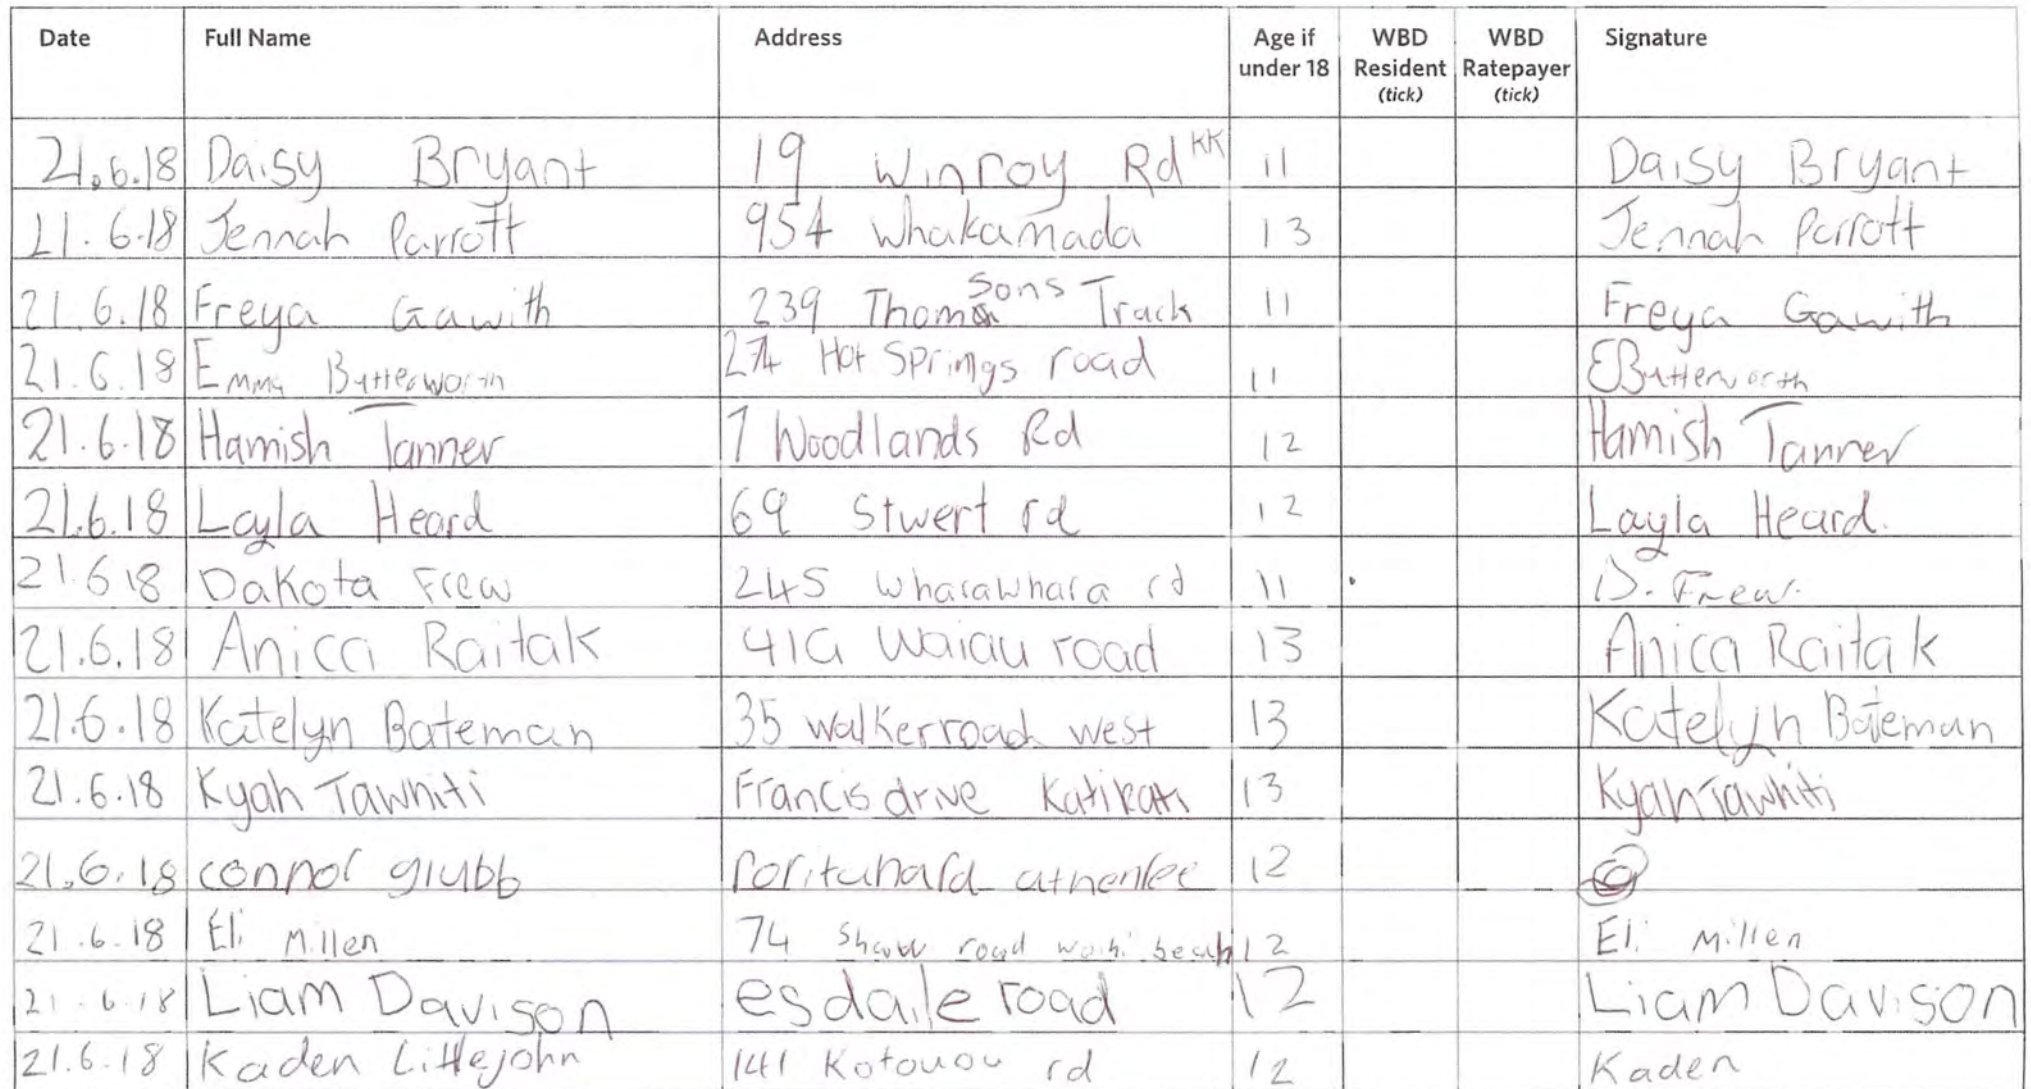 Date Full Name Address Age if under 18 WBD Resident (tick) WBD Ratepayer (tick) Signature
21.6.18 Daisy Bryant 19 Winroy Rd KK 11 Daisy Bryant
21.6.18 Jennah Parrott 954 Whakamada 13 Jennah Parrott
21.6.18 Freya Gawith 239 Thomsons Track 11 Freya Gawith
21.6.18 Emma Butterworth 274 Hot Springs road 11 EButterworth
21.6.18 Hamish Tanner 7 Woodlands Rd 12 Hamish Tanner
21.6.18 Layla Heard 69 Stwert rd 12 Layla Heard.
21.6 18 Dakota Frew 245 wharawhara rd 11 D. Frew.
21.6.18 Anica Raitak 41a Waiau road 13 Anica Raitak
21.6.18 Katelyn Bateman 35 walkerroad west 13 Katelyn Bateman
21.6.18 Kyah Tawhiti Francis drive Katikati 13 Kyah Tawhiti
21.6.18 connor grubb 12
21.6.18 Eli Millen 74 Shaw road waihi beach 12 Eli Millen
21.6.18 Liam Davison esdaile road 12 Liam Davison
21.6.18 Kaden Littlejohn 141 Kotouou rd 12 Kaden